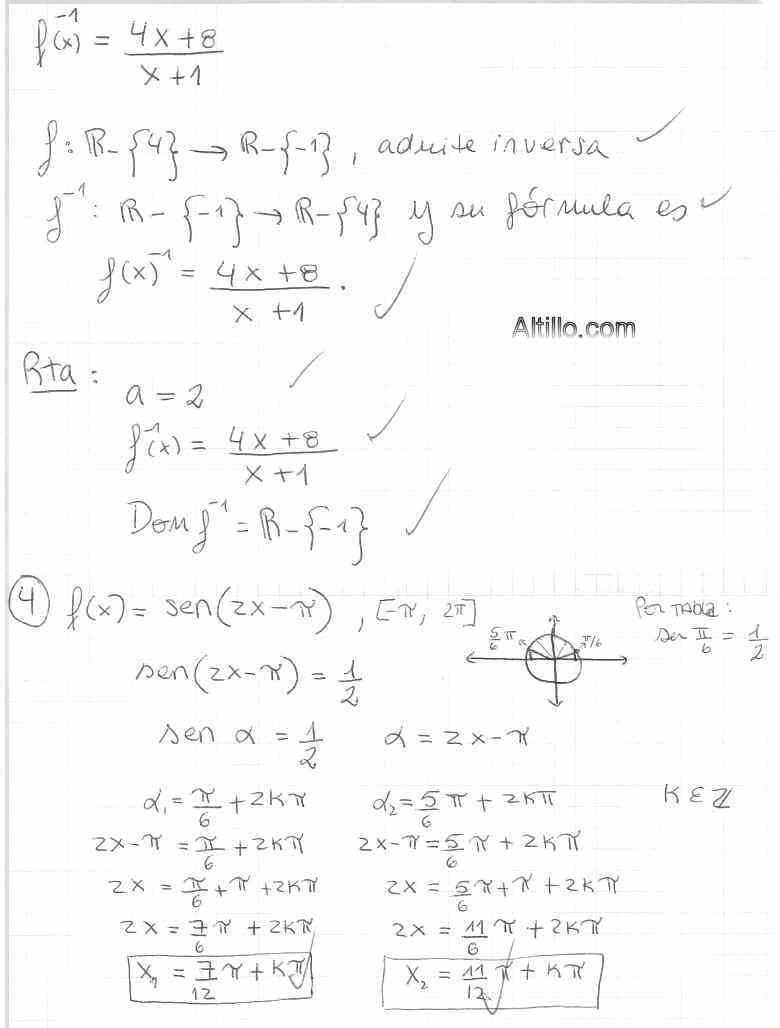 f⁻¹(x) = (4x+8)/(x+1)
f: ℝ-{4} → ℝ-{-1}, admite inversa ✓
f⁻¹: ℝ-{-1} → ℝ-{4} y su fórmula es ✓
f(x)⁻¹ = (4x+8)/(x+1). ✓
Altillo.com
Rta:
a = 2 ✓
f⁻¹(x) = (4x+8)/(x+1) ✓
Dom f⁻¹ = ℝ-{-1} ✓
④ f(x) = sen(2x-π), [-π, 2π]
5/6 π π/6
Por tabla:
sen π/6 = 1/2
sen(2x-π) = 1/2
sen α = 1/2 α = 2x-π
α₁ = π/6 + 2kπ α₂ = 5/6 π + 2kπ K ∈ ℤ
2x-π = π/6 + 2kπ 2x-π = 5/6 π + 2kπ
2x = π/6 + π + 2kπ 2x = 5/6 π + π + 2kπ
2x = 7/6 π + 2kπ 2x = 11/6 π + 2kπ
x₁ = 7/12 π + kπ ✓ x₂ = 11/12 π + kπ ✓